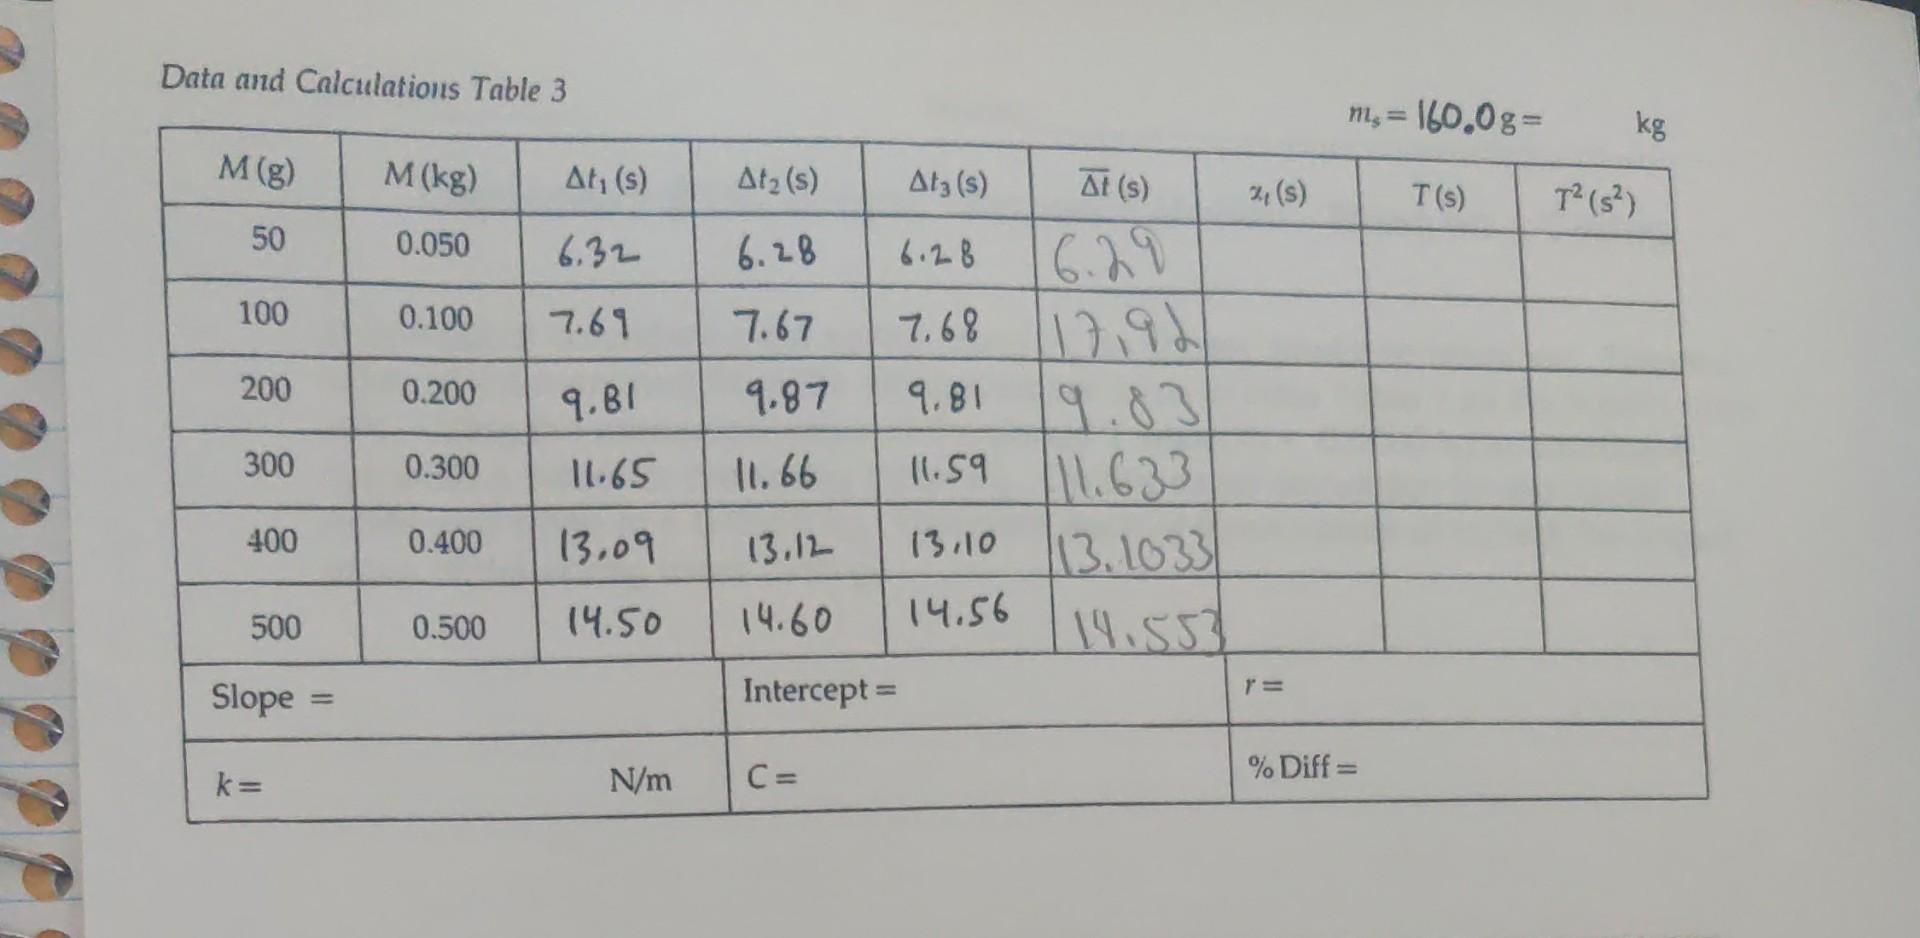 Data and Calculations Table 3
mₛ = 160.0 g = kg
M (g) M (kg) Δt₁ (s) Δt₂ (s) Δt₃ (s) Δt̅ (s) αₜ (s) T (s) T² (s²)
50 0.050 6.32 6.28 6.28 6.29
100 0.100 7.69 7.67 7.68 17.92
200 0.200 9.81 9.87 9.81 9.83
300 0.300 11.65 11.66 11.59 11.633
400 0.400 13.09 13.12 13.10 13.1033
500 0.500 14.50 14.60 14.56 14.553
Slope = Intercept = r =
k = N/m C = % Diff =